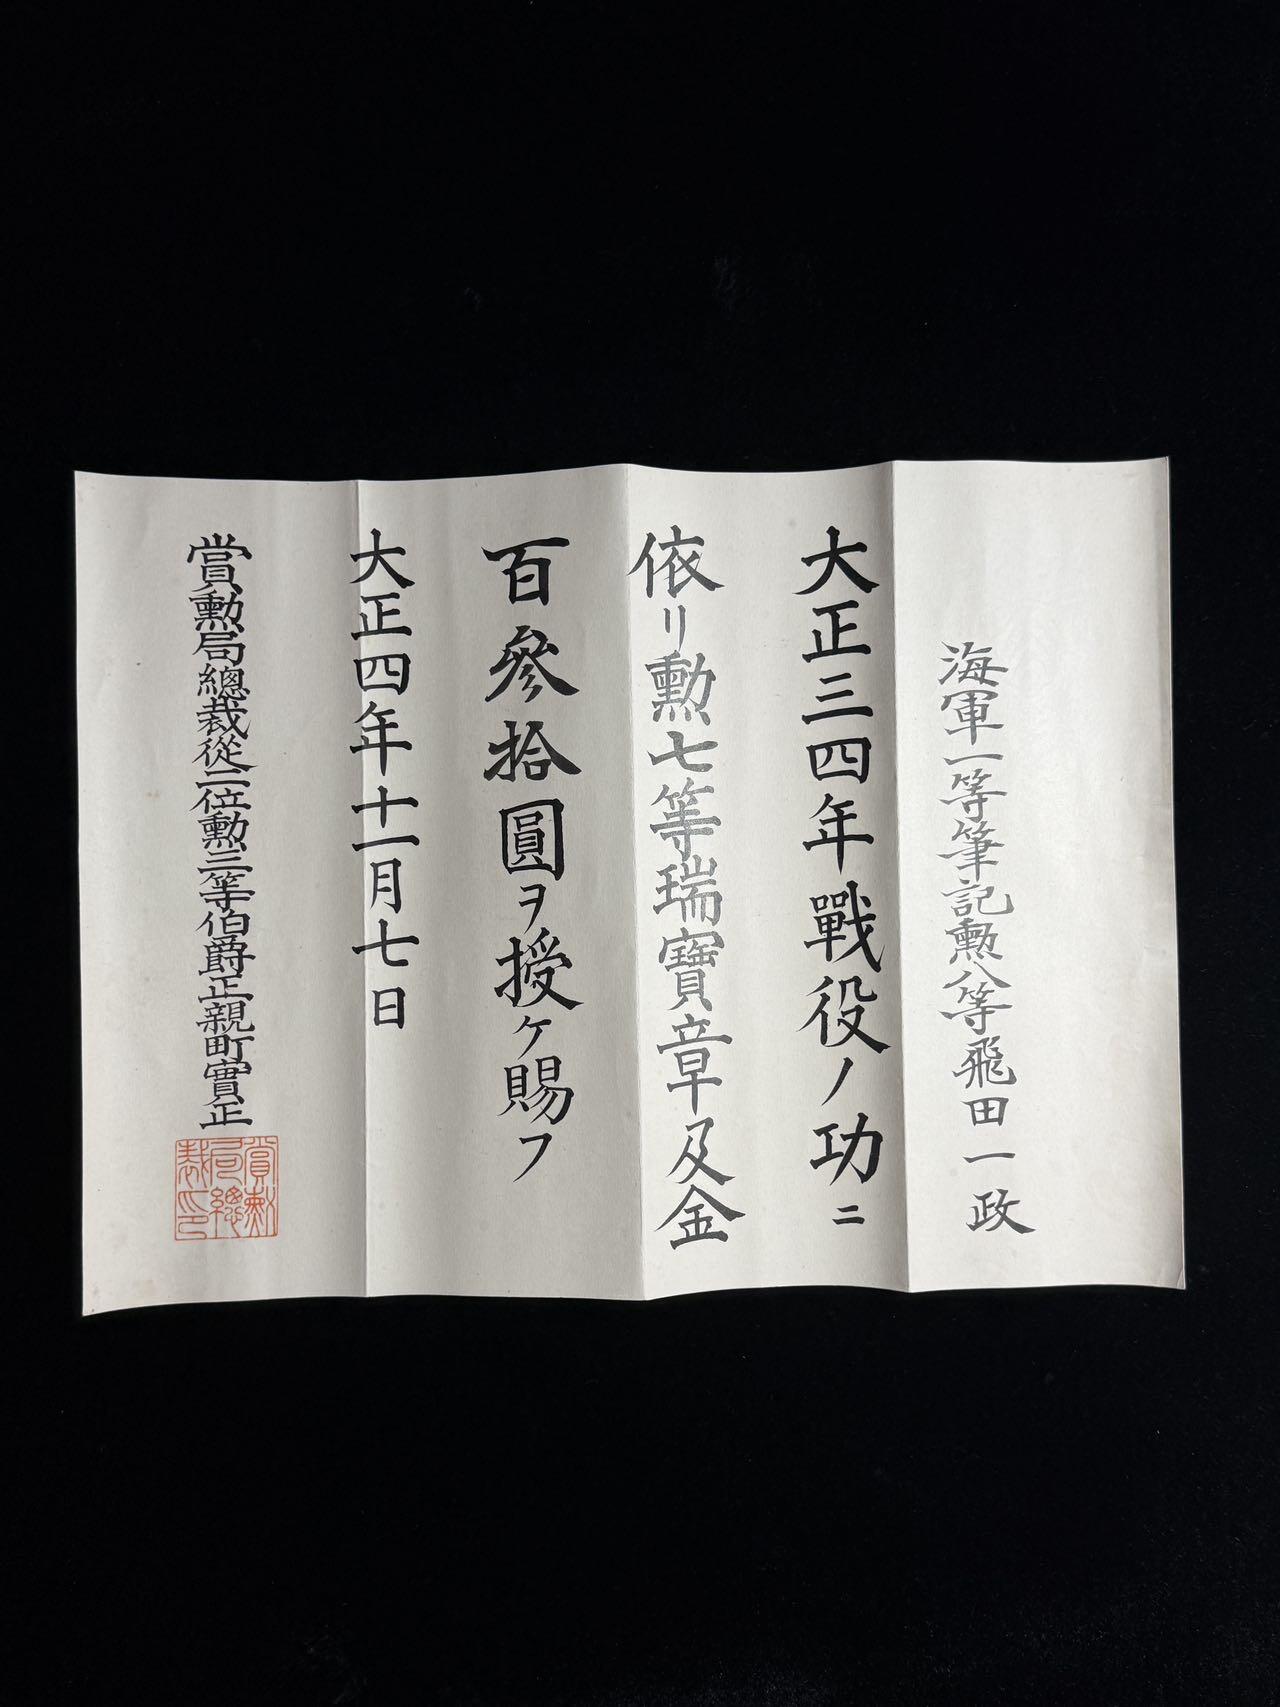 海軍一等筆記勲八等飛田一政
大正三四年戰役ノ功ニ
依リ勲七等瑞寶章及金
百參拾圓ヲ授ケ賜フ
大正四年十一月七日
賞勲局總裁從二位勲三等伯爵正親町實正
賞勲
局總
裁印